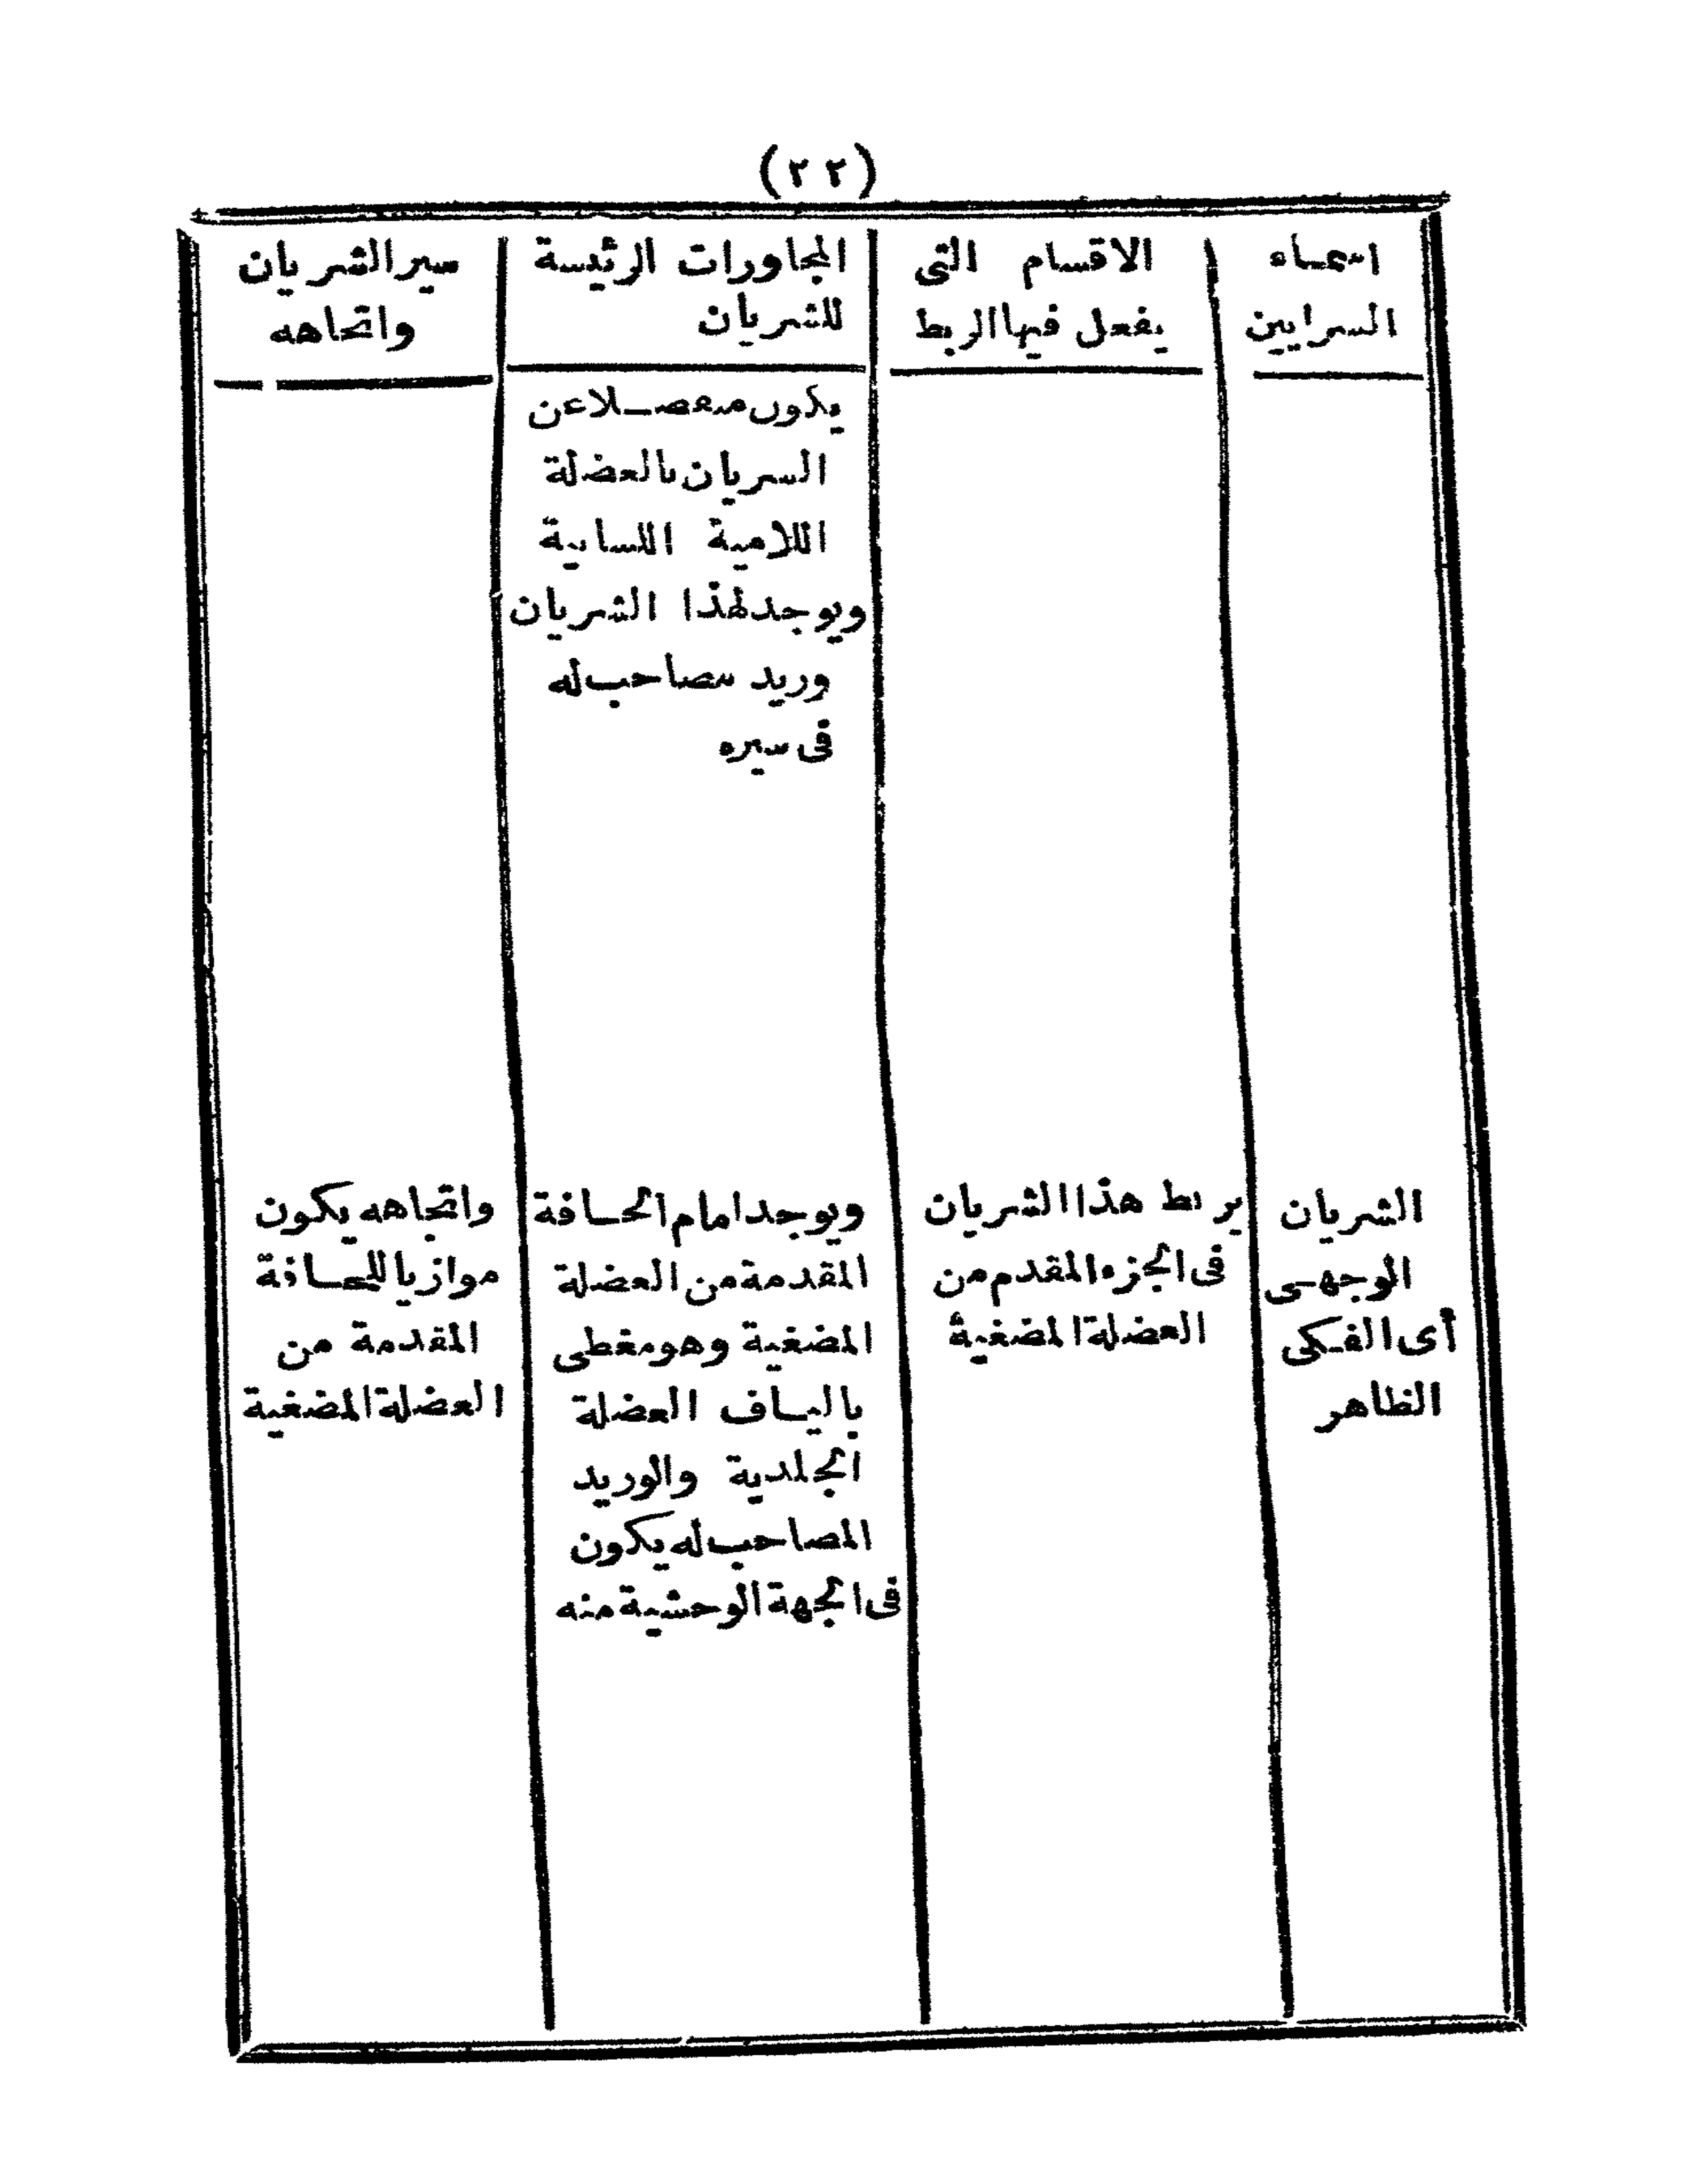 (٢٢)
اسماء
الشرايين
الاقسام التى
يفعل فيها الربط
المجاورات الرئيسة
للشريان
سير الشريان
واتجاهه
يكون منفصلا عن
الشريان بالعضلة
اللامية اللسانية
ويوجد لهذا الشريان
وريد مصاحب له
فى سيره
الشريان
الوجهى
أى الفكى
الظاهر
يربط هذا الشريان
فى الجزء المقدم من
العضلة المضغية
ويوجد امام الحافة
المقدمة من العضلة
المضغية وهو مغطى
بالياف العضلة
الجلدية والوريد
المصاحب له يكون
فى الجهة الوحشية منه
واتجاهه يكون
موازيا للحافة
المقدمة من
العضلة المضغية